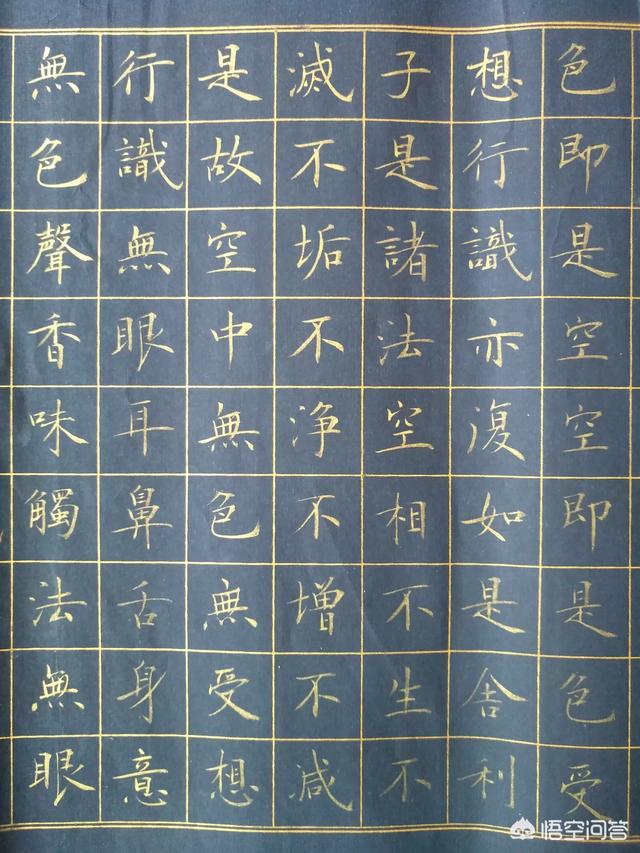 色即是空空即是色受
想行識亦復如是舍利
子是諸法空相不生不
滅不垢不淨不增不減
是故空中無色無受想
行識無眼耳鼻舌身意
無色聲香味觸法無眼
悟空问答